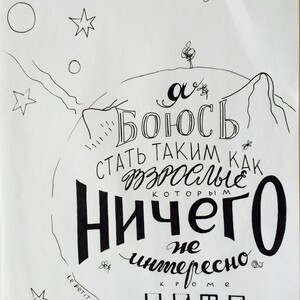 я
БОЮСЬ
СТАТЬ ТАКИМ КАК
ВЗРОСЛЫЕ
КОТОРЫМ
НИЧЕГО
не
интересно
КРОМЕ
LE PETIT